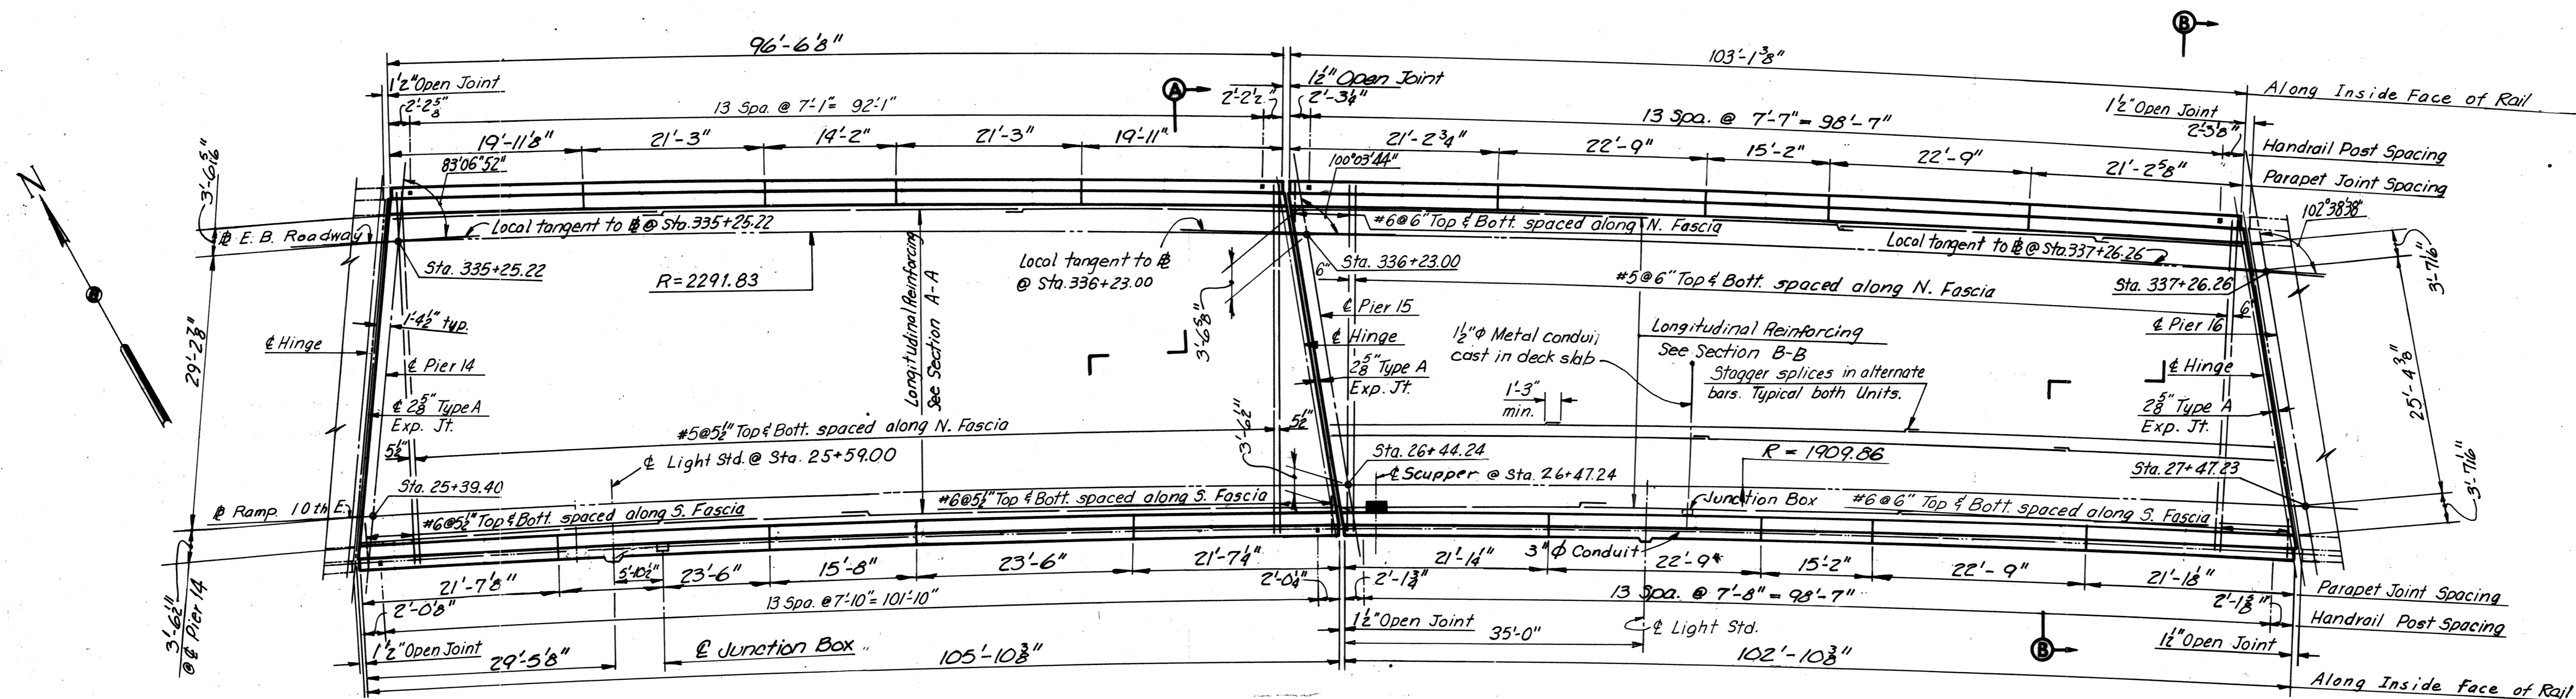 96'-6⅛"
103'-1⅜"
B
1½" Open Joint
2'-2⅝"
13 Spa. @ 7'-1" = 92'-1"
A
2'-2½"
1½" Open Joint
2'-3¼"
13 Spa. @ 7'-7" = 98'-7"
1½" Open Joint
2'-3⅛"
Along Inside Face of Rail
Handrail Post Spacing
Parapet Joint Spacing
19'-11⅛"
21'-3"
14'-2"
21'-3"
19'-11"
21'-2¾"
22'-9"
15'-2"
22'-9"
21'-2⅝"
83°06'52"
100°03'44"
102°38'38"
N
3'-6 5/16"
℄ E. B. Roadway
Local tangent to ℄ @ Sta. 335+25.22
Sta. 335+25.22
R=2291.83
Longitudinal Reinforcing
See Section A-A
Local tangent to ℄
@ Sta. 336+23.00
#6@6" Top & Bott. spaced along N. Fascia
Sta. 336+23.00
6"
Local tangent to ℄ @ Sta. 337+26.26
#5@6" Top & Bott. spaced along N. Fascia
Sta. 337+26.26
3'-7 1/16"
6"
29'-2⅞"
1'-4½" typ.
℄ Hinge
℄ Pier 14
℄ 2⅝" Type A
Exp. Jt.
3'-6⅝"
℄ Pier 15
℄ Hinge
2⅝" Type A
Exp. Jt.
1½" Φ Metal conduit
cast in deck slab
Longitudinal Reinforcing
See Section B-B
1'-3"
min.
Stagger splices in alternate
bars. Typical both Units.
℄ Pier 16
℄ Hinge
2⅝" Type A
Exp. Jt.
25'-4⅜"
5½"
#5@5½" Top & Bott. spaced along N. Fascia
5½"
3'-6½"
℄ Light Std. @ Sta. 25+59.00
Sta. 25+39.40
℄ Ramp 10th E.
#6@5½" Top & Bott. spaced along S. Fascia
#6@5½" Top & Bott. spaced along S. Fascia
Sta. 26+44.24
℄ Scupper @ Sta. 26+47.24
R = 1909.86
Junction Box
#6@6" Top & Bott. spaced along S. Fascia
Sta. 27+47.23
3'-7 1/16"
3'-6½"
@ ℄ Pier 14
21'-7⅛"
5'-10½"
23'-6"
15'-8"
23'-6"
21'-7¼"
21'-1¼"
3" Φ Conduit
22'-9"
15'-2"
22'-9"
21'-1⅛"
Parapet Joint Spacing
2'-0⅛"
13 Spa. @ 7'-10" = 101'-10"
2'-0¼"
2'-1¾"
13 Spa. @ 7'-8" = 98'-7"
2'-1⅝"
Handrail Post Spacing
1½" Open Joint
29'-5⅛"
℄ Junction Box
105'-10⅜"
1½" Open Joint
35'-0"
℄ Light Std.
102'-10⅜"
B
1½" Open Joint
Along Inside Face of Rail